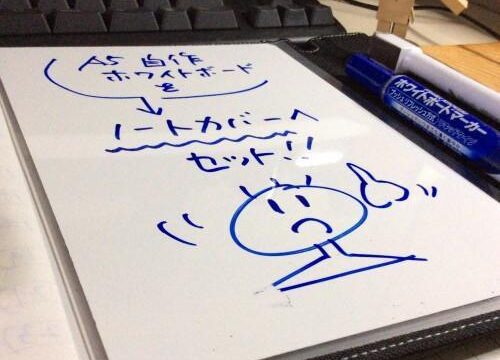 A5 自作
ホワイトボード
を
ノートカバーへ
セット!!
ホワイトボードマーカー